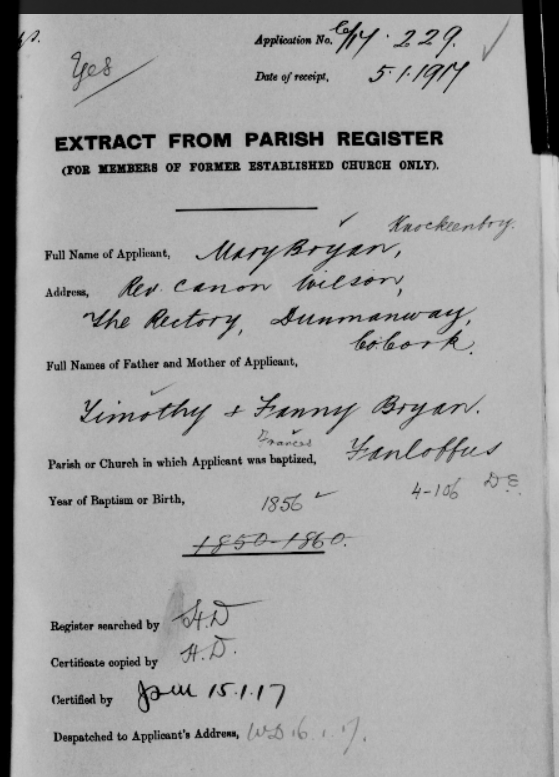 Application No. C/17. 229.
Yes
Date of receipt, 5.1.1917
EXTRACT FROM PARISH REGISTER
(FOR MEMBERS OF FORMER ESTABLISHED CHURCH ONLY).
Full Name of Applicant, Mary Bryan,
Address, Rev. Canon Wilson,
The Rectory, Dunmanway,
Co. Cork.
Full Names of Father and Mother of Applicant,
Timothy & Fanny Bryan.
Frances
Parish or Church in which Applicant was baptized, Fanlobbus
4-106 D.E.
Year of Baptism or Birth, 1856
1850-1860.
Register searched by H.D
Certificate copied by H.D.
Certified by 15.1.17
Despatched to Applicant's Address, 16.1.17.